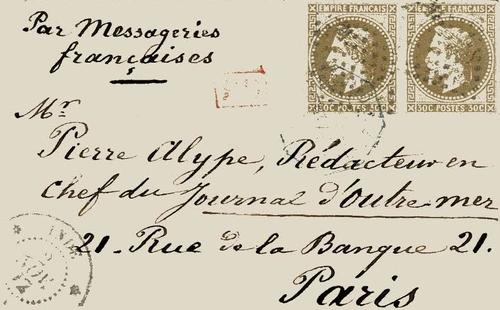 Par Messageries
françaises
EMPIRE FRANÇAIS
EMPIRE FRANÇAIS
30C POSTES 30C
30C POSTES 30C
Mr.
Pierre Alype, Rédacteur en
chef du Journal d'Outre mer
21 - Rue de la Banque 21.
Paris
INDE
NOV